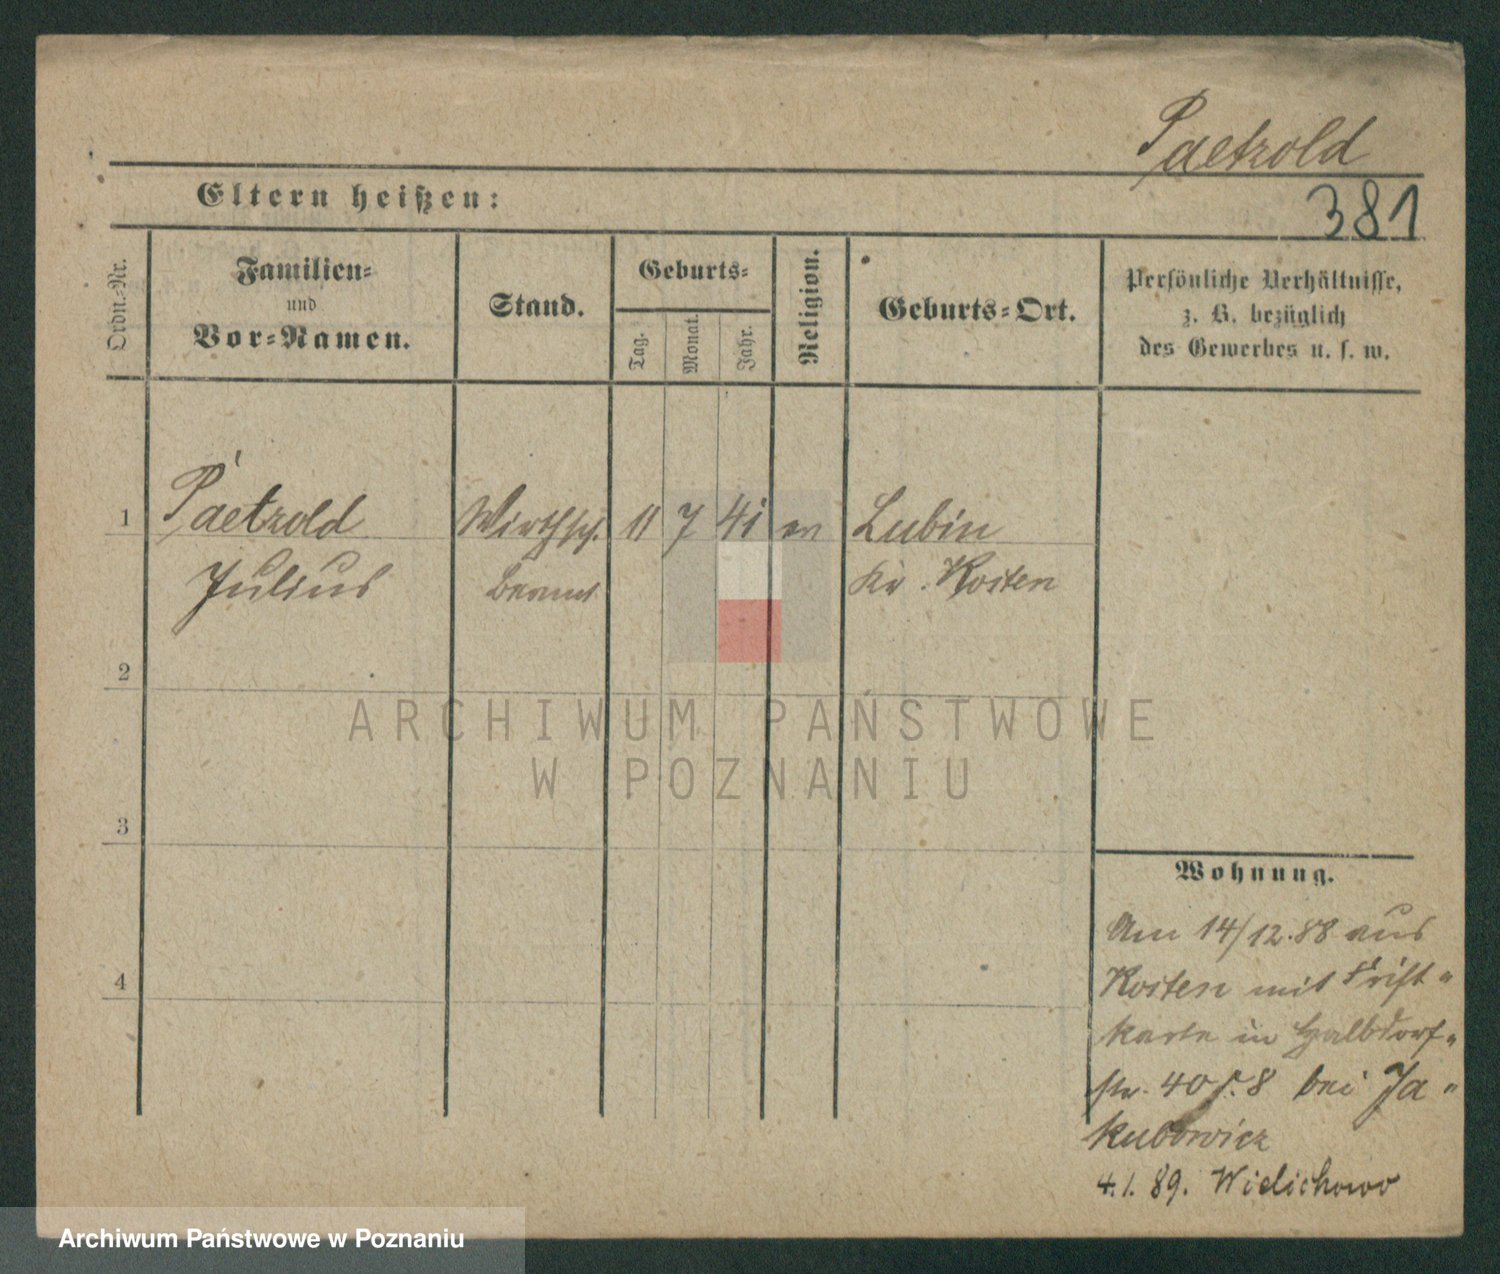 Paetzold
Eltern heißen:
381
Ordn.-Nr.
Familien-
und
Vor-Namen.
Stand.
Geburts-
Tag.
Monat.
Jahr.
Religion.
Geburts-Ort.
Persönliche Verhältnisse,
z. B. bezüglich
des Gewerbes u. s. w.
1 Paetzold Wirthsch. 11 7 41 ev Lubin
Julius Beamt Kr. Kosten
2
3
4
Wohnung.
Am 14/12.88 aus
Kosten mit Frist-
karte in Halbdorf-
str. 40 8 bei Ja-
kubowicz
4.1.89. Wielichowo
ARCHIWUM PAŃSTWOWE
W POZNANIU
Archiwum Państwowe w Poznaniu